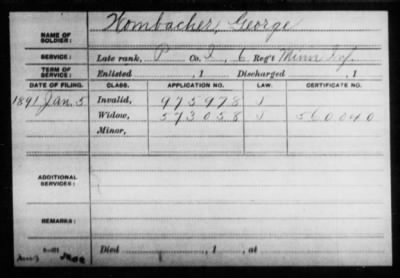 NAME OF SOLDIER: Hombacher, George
SERVICE: Late rank, P Co. I, 6 Reg't Minn Inf.
TERM OF SERVICE: Enlisted , 1 Discharged , 1
DATE OF FILING. CLASS. APPLICATION NO. LAW. CERTIFICATE NO.
1891 Jan. 5 Invalid, 975978 J
Widow, 573058 J 560040
Minor,
ADDITIONAL SERVICES:
REMARKS:
Died , 1 , at